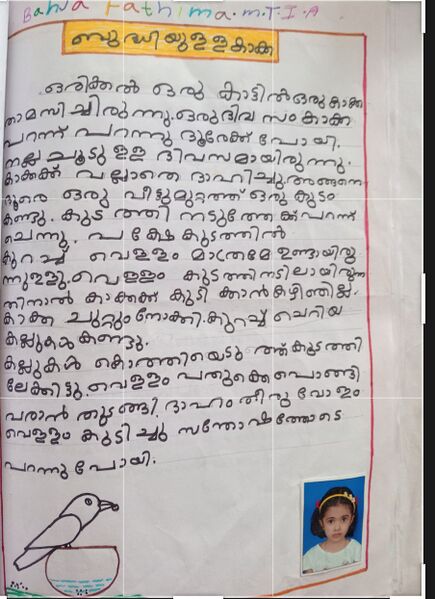 Baha Fathima.M.T.I.A
ബുദ്ധിയുള്ളകാക്ക
ഒരിക്കൽ ഒരു കാട്ടിൽ ഒരു കാക്ക
താമസിച്ചിരുന്നു. ഒരു ദിവസം കാക്ക
പറന്ന് പറന്നു ദൂരേക്ക് പോയി.
നല്ല ചൂടു ഉള്ള ദിവസമായിരുന്നു.
കാക്കക്ക് വല്ലാതെ ദാഹിച്ചു അങ്ങനെ
ദൂരെ ഒരു വീട്ടുമുറ്റത്ത് ഒരു കുടം
കണ്ടു. കുടത്തി നടുത്തേക്ക് പറന്ന്
ചെന്നു. പക്ഷേ കുടത്തിൽ
കുറച്ച് വെള്ളം മാത്രമേ ഉണ്ടായിരു
ന്നുള്ളു. വെള്ളം കുടത്തിനടിലായിരുന്ന
തിനാൽ കാക്കക്ക് കുടിക്കാൻകഴിഞ്ഞില്ല.
കാക്ക ചുറ്റും നോക്കി. കുറച്ച് ചെറിയ
കല്ലുകൾകണ്ടു.
കല്ലുകൾ കൊത്തിയെടുത്ത് കുടത്തി
ലേക്കിട്ടു. വെള്ളം പതുക്കെപൊങ്ങി
വരാൻ തുടങ്ങി. ദാഹം തീരുവോളം
വെള്ളം കുടിച്ചു സന്തോഷത്തോടെ
പറന്നുപോയി.